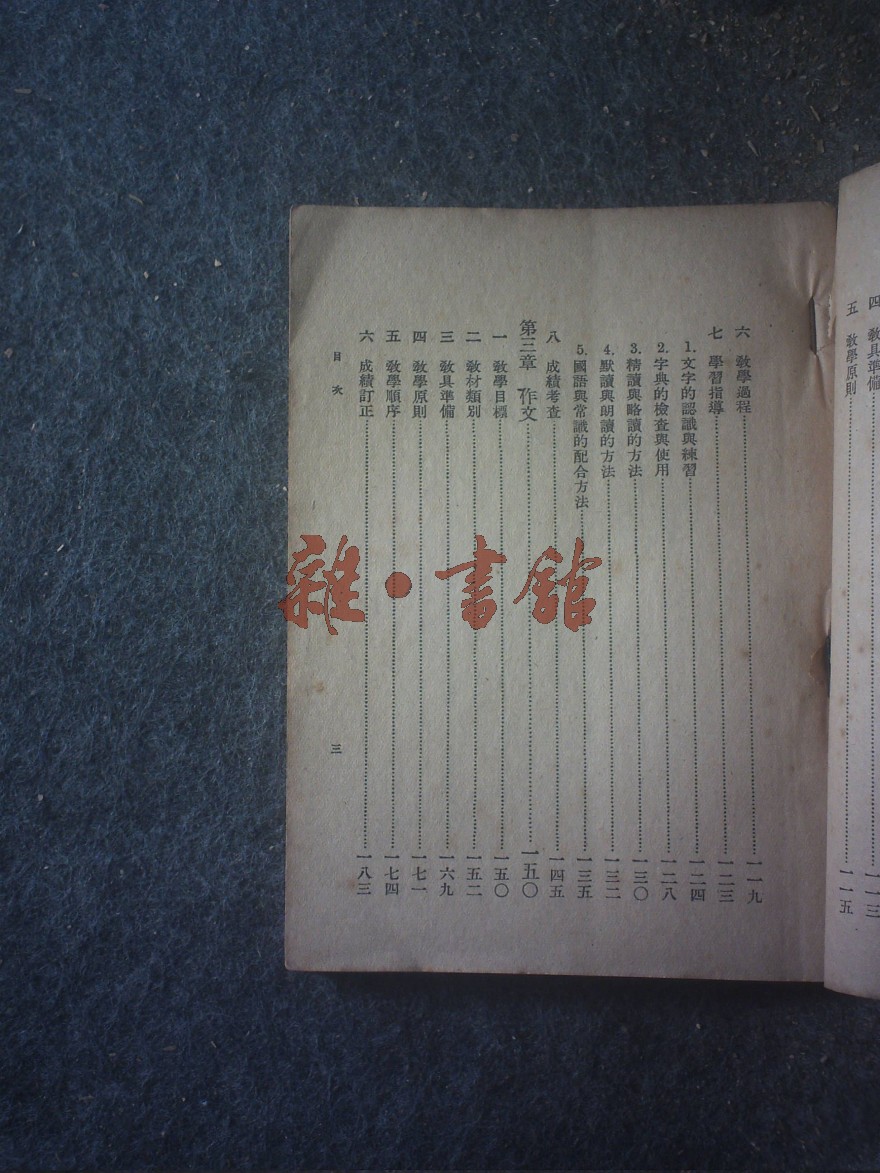 四 教具準備……一一三
五 教學原則……一一五
六 教學過程……一一九
七 學習指導……一二三
1. 文字的認識與練習……一二四
2. 字典的檢查與使用……一二八
3. 精讀與略讀的方法……一三〇
4. 默讀與朗讀的方法……一三二
5. 國語與常識的配合方法……一三五
八 成績考查……一四五
第三章 作文……一五〇
一 教學目標……一五〇
二 教材類別……一五二
三 教具準備……一六九
四 教學原則……一七一
五 教學順序……一七四
六 成績訂正……一八三
目次 三
雜·書館